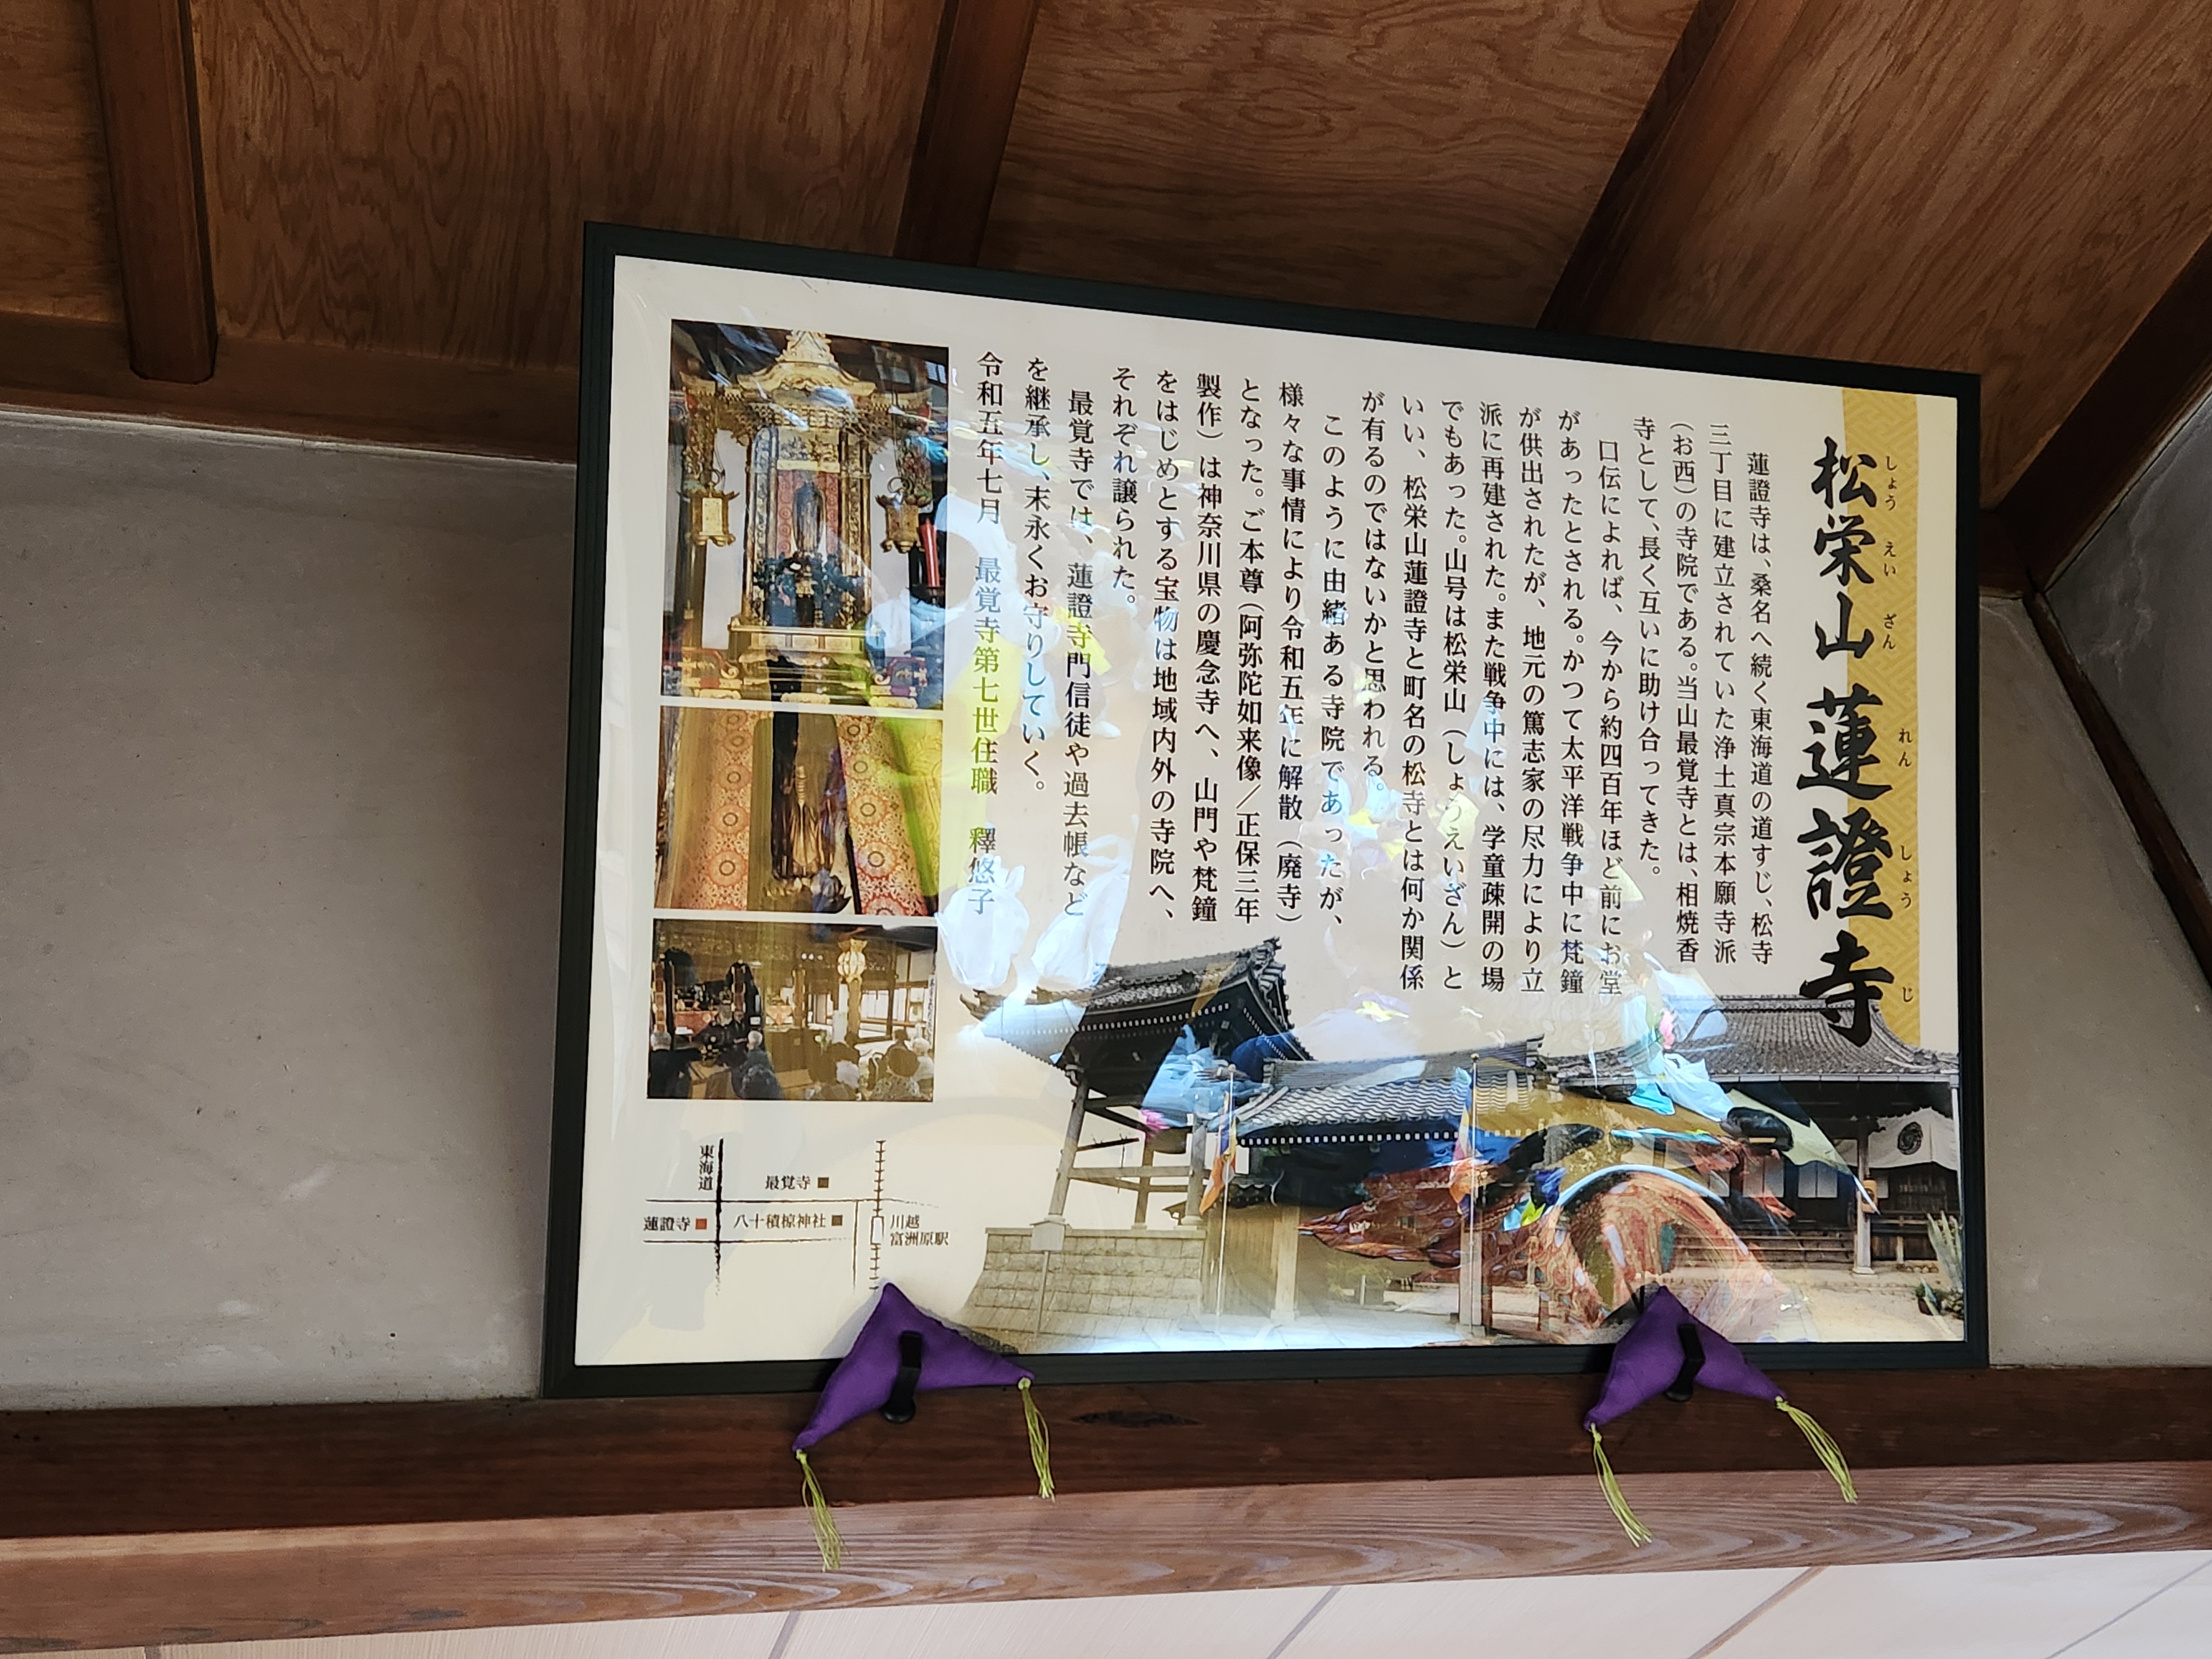 松栄山 蓮證寺
しょう えい ざん れん しょう じ
蓮證寺は、桑名へ続く東海道の道すじ、松寺
三丁目に建立されていた浄土真宗本願寺派
（お西）の寺院である。当山最覚寺とは、相焼香
寺として、長く互いに助け合ってきた。
口伝によれば、今から約四百年ほど前にお堂
があったとされる。かつて太平洋戦争中に梵鐘
が供出されたが、地元の篤志家の尽力により立
派に再建された。また戦争中には、学童疎開の場
でもあった。山号は松栄山（しょうえいざん）と
いい、松栄山蓮證寺と町名の松寺とは何か関係
が有るのではないかと思われる。
このように由緒ある寺院であったが、
様々な事情により令和五年に解散（廃寺）
となった。ご本尊（阿弥陀如来像／正保三年
製作）は神奈川県の慶念寺へ、山門や梵鐘
をはじめとする宝物は地域内外の寺院へ、
それぞれ譲られた。
最覚寺では、蓮證寺門信徒や過去帳など
を継承し、末永くお守りしていく。
令和五年七月 最覚寺第七世住職 釋悠子
東海道
最覚寺
蓮證寺
八十積椋神社
川越
富洲原駅